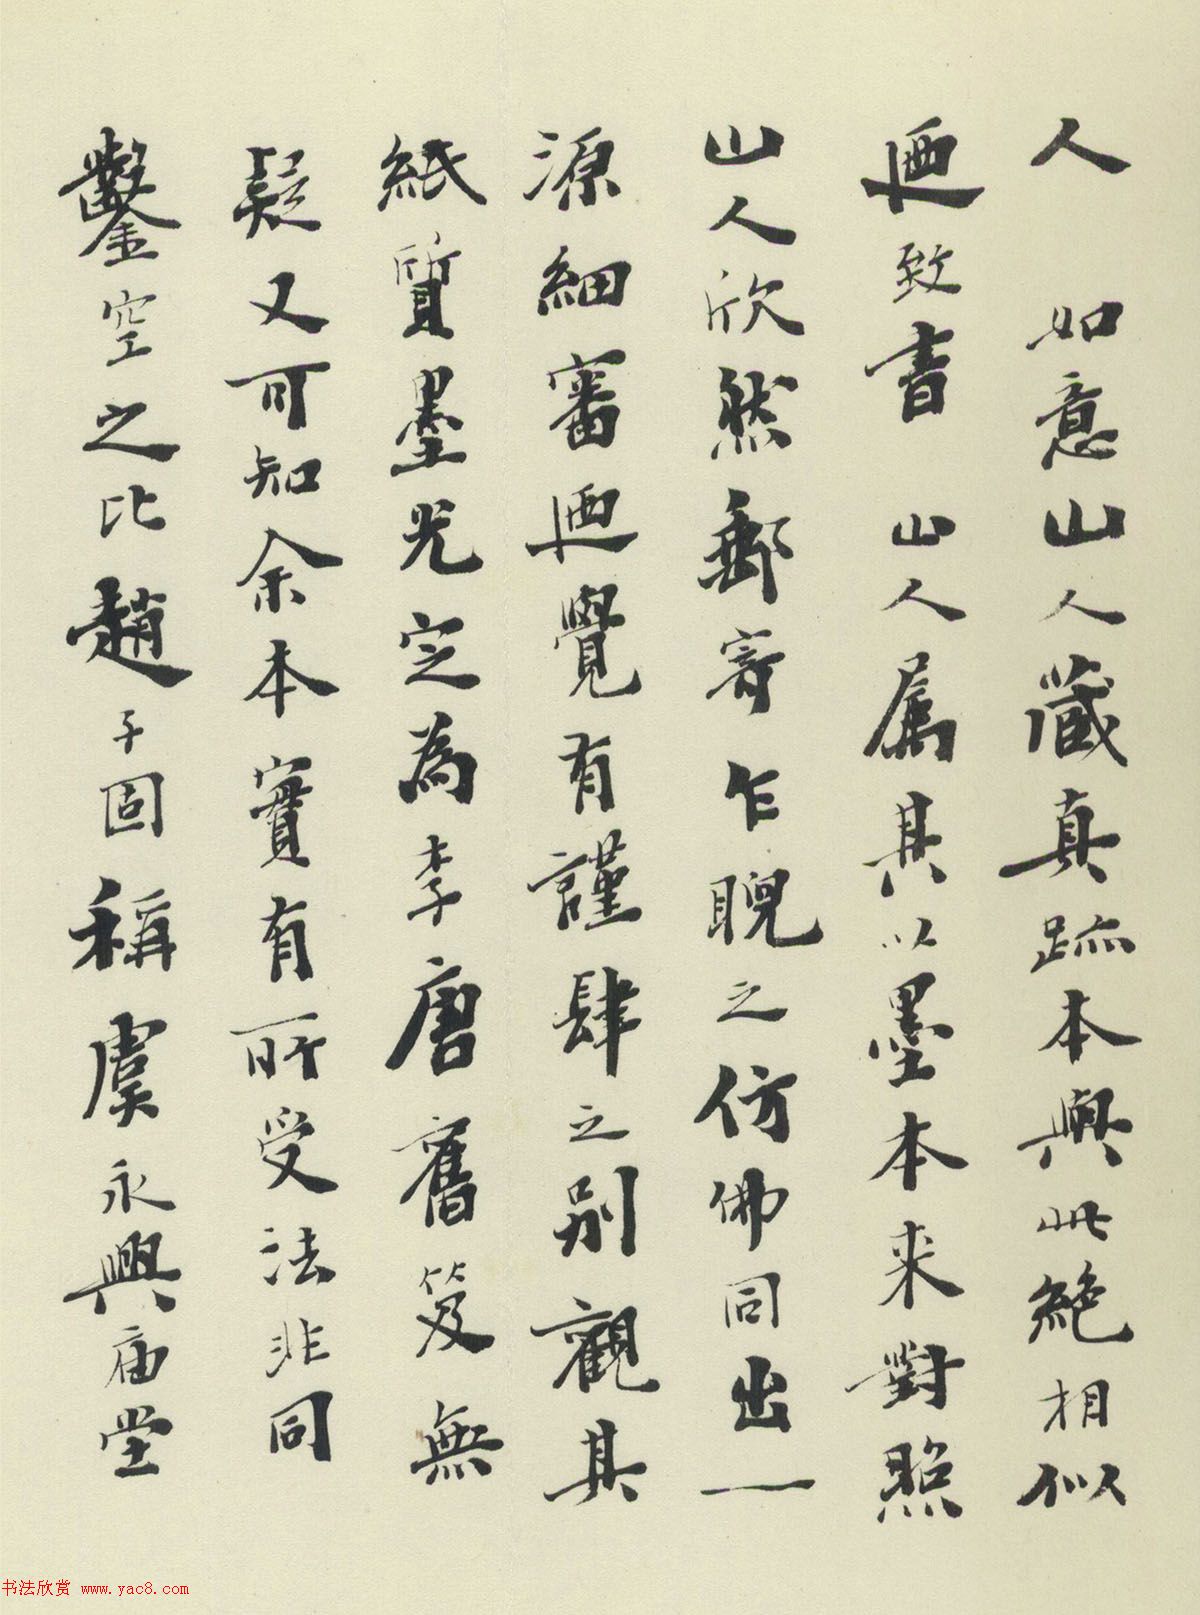 人 如意山人藏真跡本與此絕相似
迺致書 山人屬其以墨本来對照
山人欣然郵寄乍睨之仿佛同出一
源細審迺覺有謹肆之別觀其
紙質墨光定為李唐舊笈無
疑又可知余本實有所受法非同
鑿空之比趙子固稱虞永興庙堂
书法欣赏 www.yac8.com